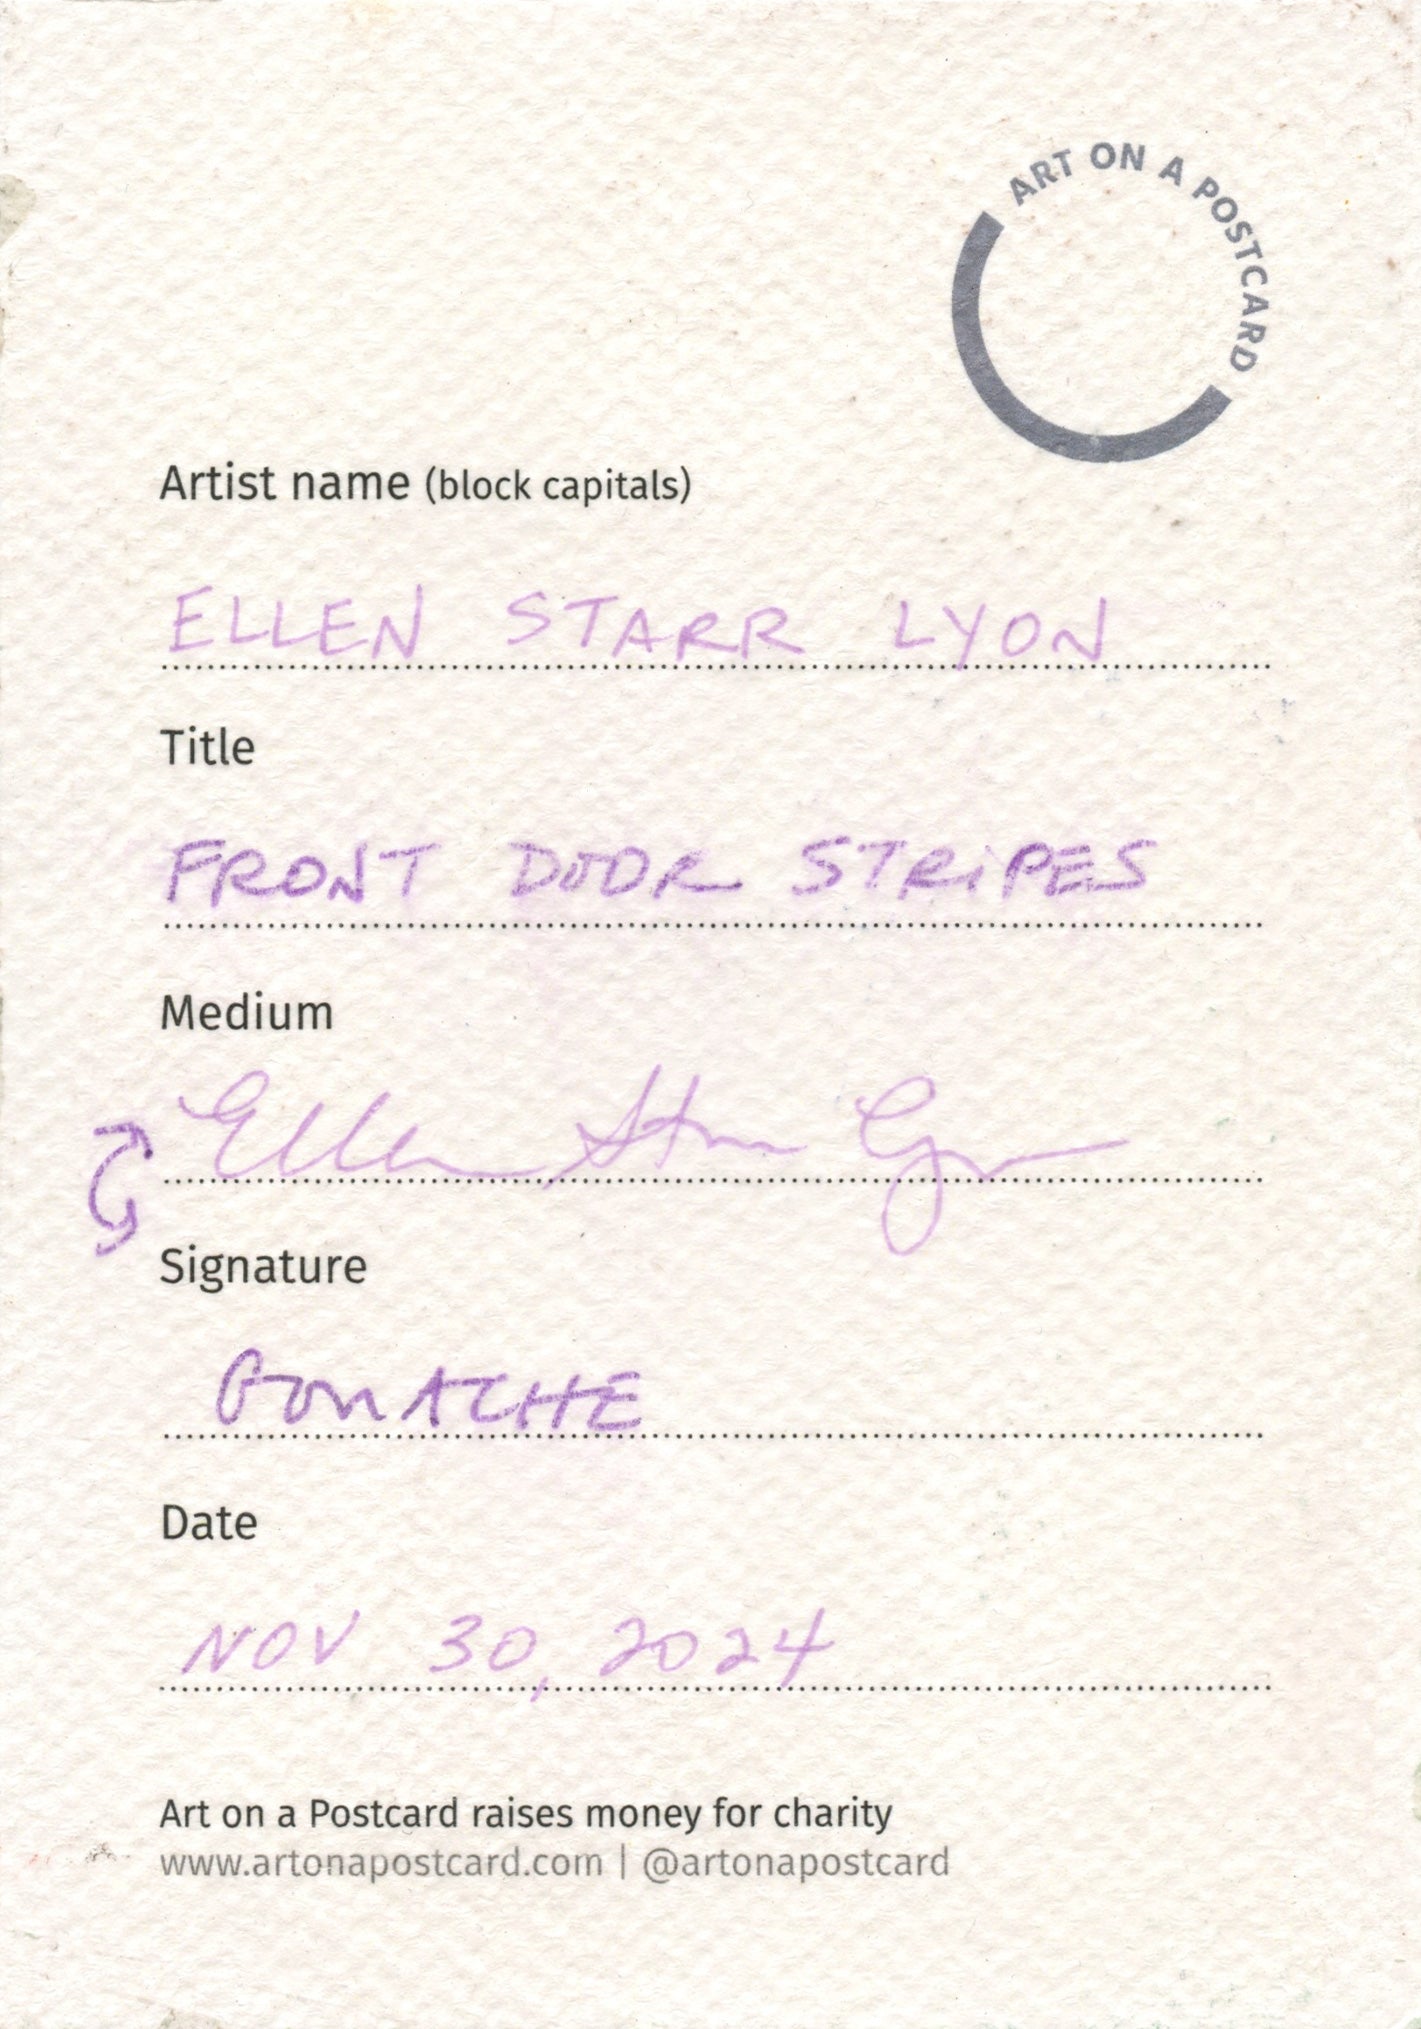 ART ON A POSTCARD
Artist name (block capitals)
ELLEN STARR LYON
Title
FRONT DOOR STRIPES
Medium
Ellen Starr Lyon
Signature
GOUACHE
Date
NOV 30, 2024
Art on a Postcard raises money for charity
www.artonapostcard.com | @artonapostcard